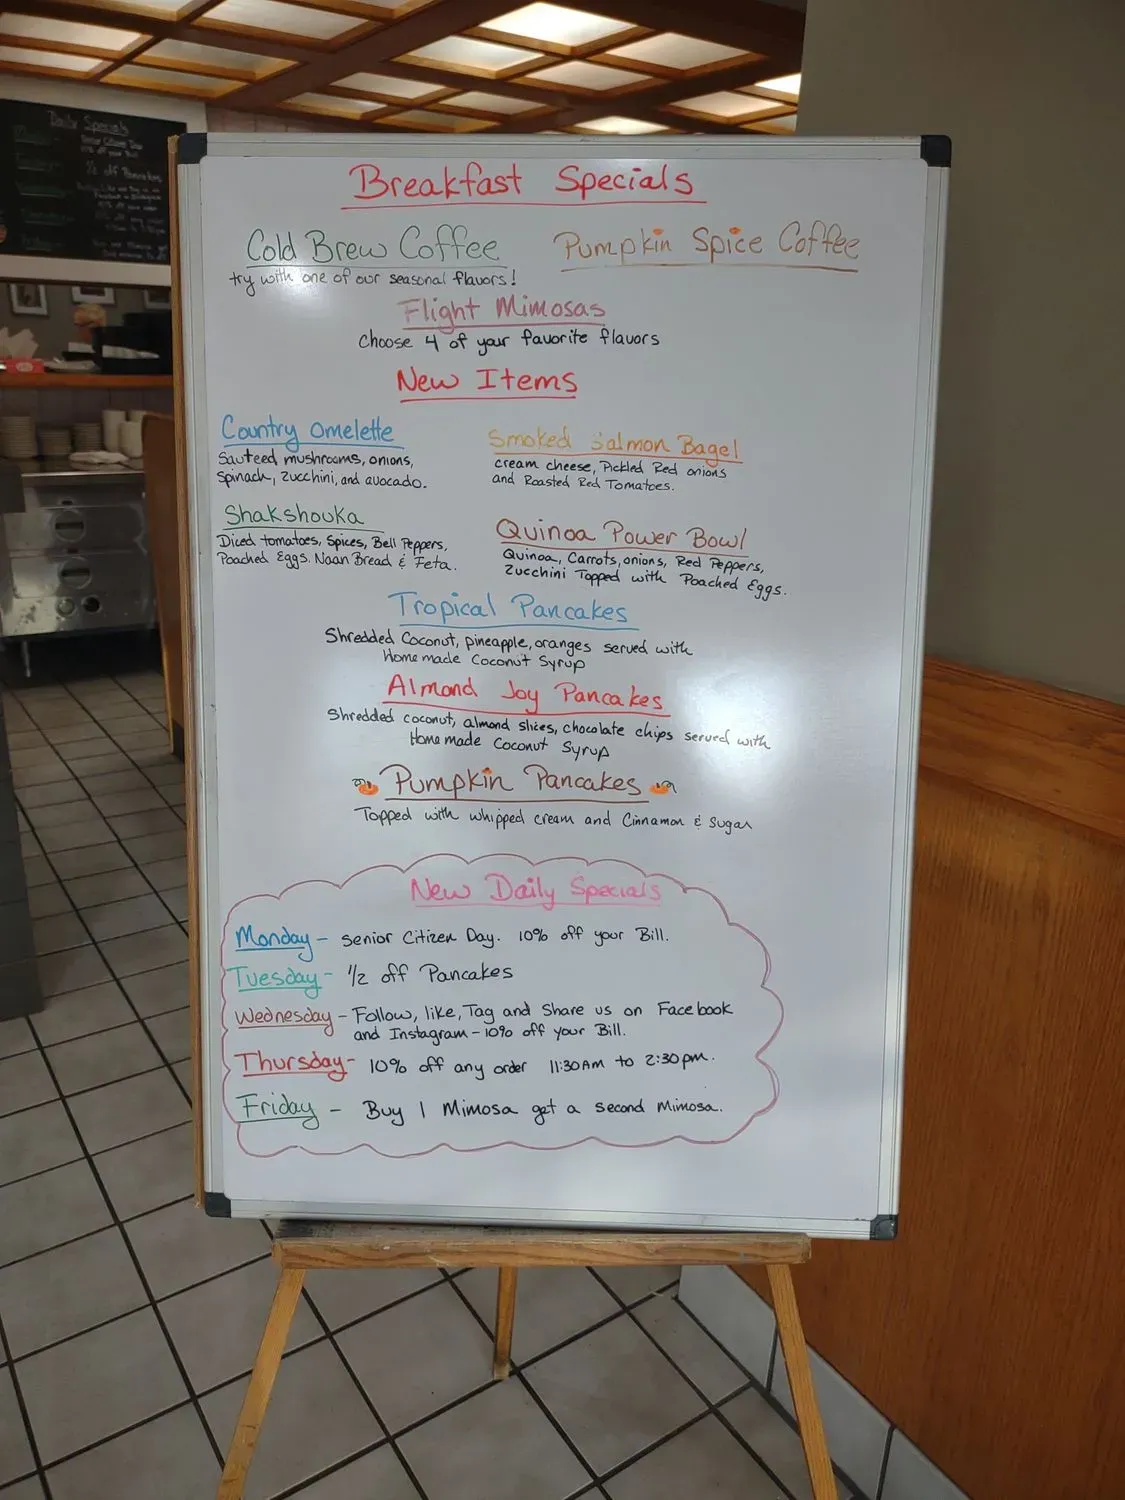 Breakfast Specials
Cold Brew Coffee
try with one of our seasonal flavors!
Pumpkin Spice Coffee
Flight Mimosas
Choose 4 of your favorite flavors
New Items
Country Omelette
Sauteed mushrooms, onions,
Spinach, Zucchini, and avocado.
Smoked Salmon Bagel
cream cheese, Pickled Red onions
and Roasted Red Tomatoes.
Shakshouka
Diced tomatoes, Spices, Bell Peppers,
Poached Eggs. Naan Bread & Feta.
Quinoa Power Bowl
Quinoa, Carrots, onions, Red Peppers,
Zucchini Topped with Poached Eggs.
Tropical Pancakes
Shredded Coconut, pineapple, oranges served with
Homemade Coconut Syrup
Almond Joy Pancakes
Shredded coconut, almond slices, chocolate chips served with
Homemade Coconut Syrup
Pumpkin Pancakes
Topped with whipped cream and Cinnamon & Sugar
New Daily Specials
Monday - Senior Citizen Day. 10% off your Bill.
Tuesday - 1/2 off Pancakes
Wednesday - Follow, like, Tag and Share us on Facebook
and Instagram - 10% off your Bill.
Thursday - 10% off any order 11:30AM to 2:30pm.
Friday - Buy 1 Mimosa get a second Mimosa.
Daily Specials
1/2 off Pancakes